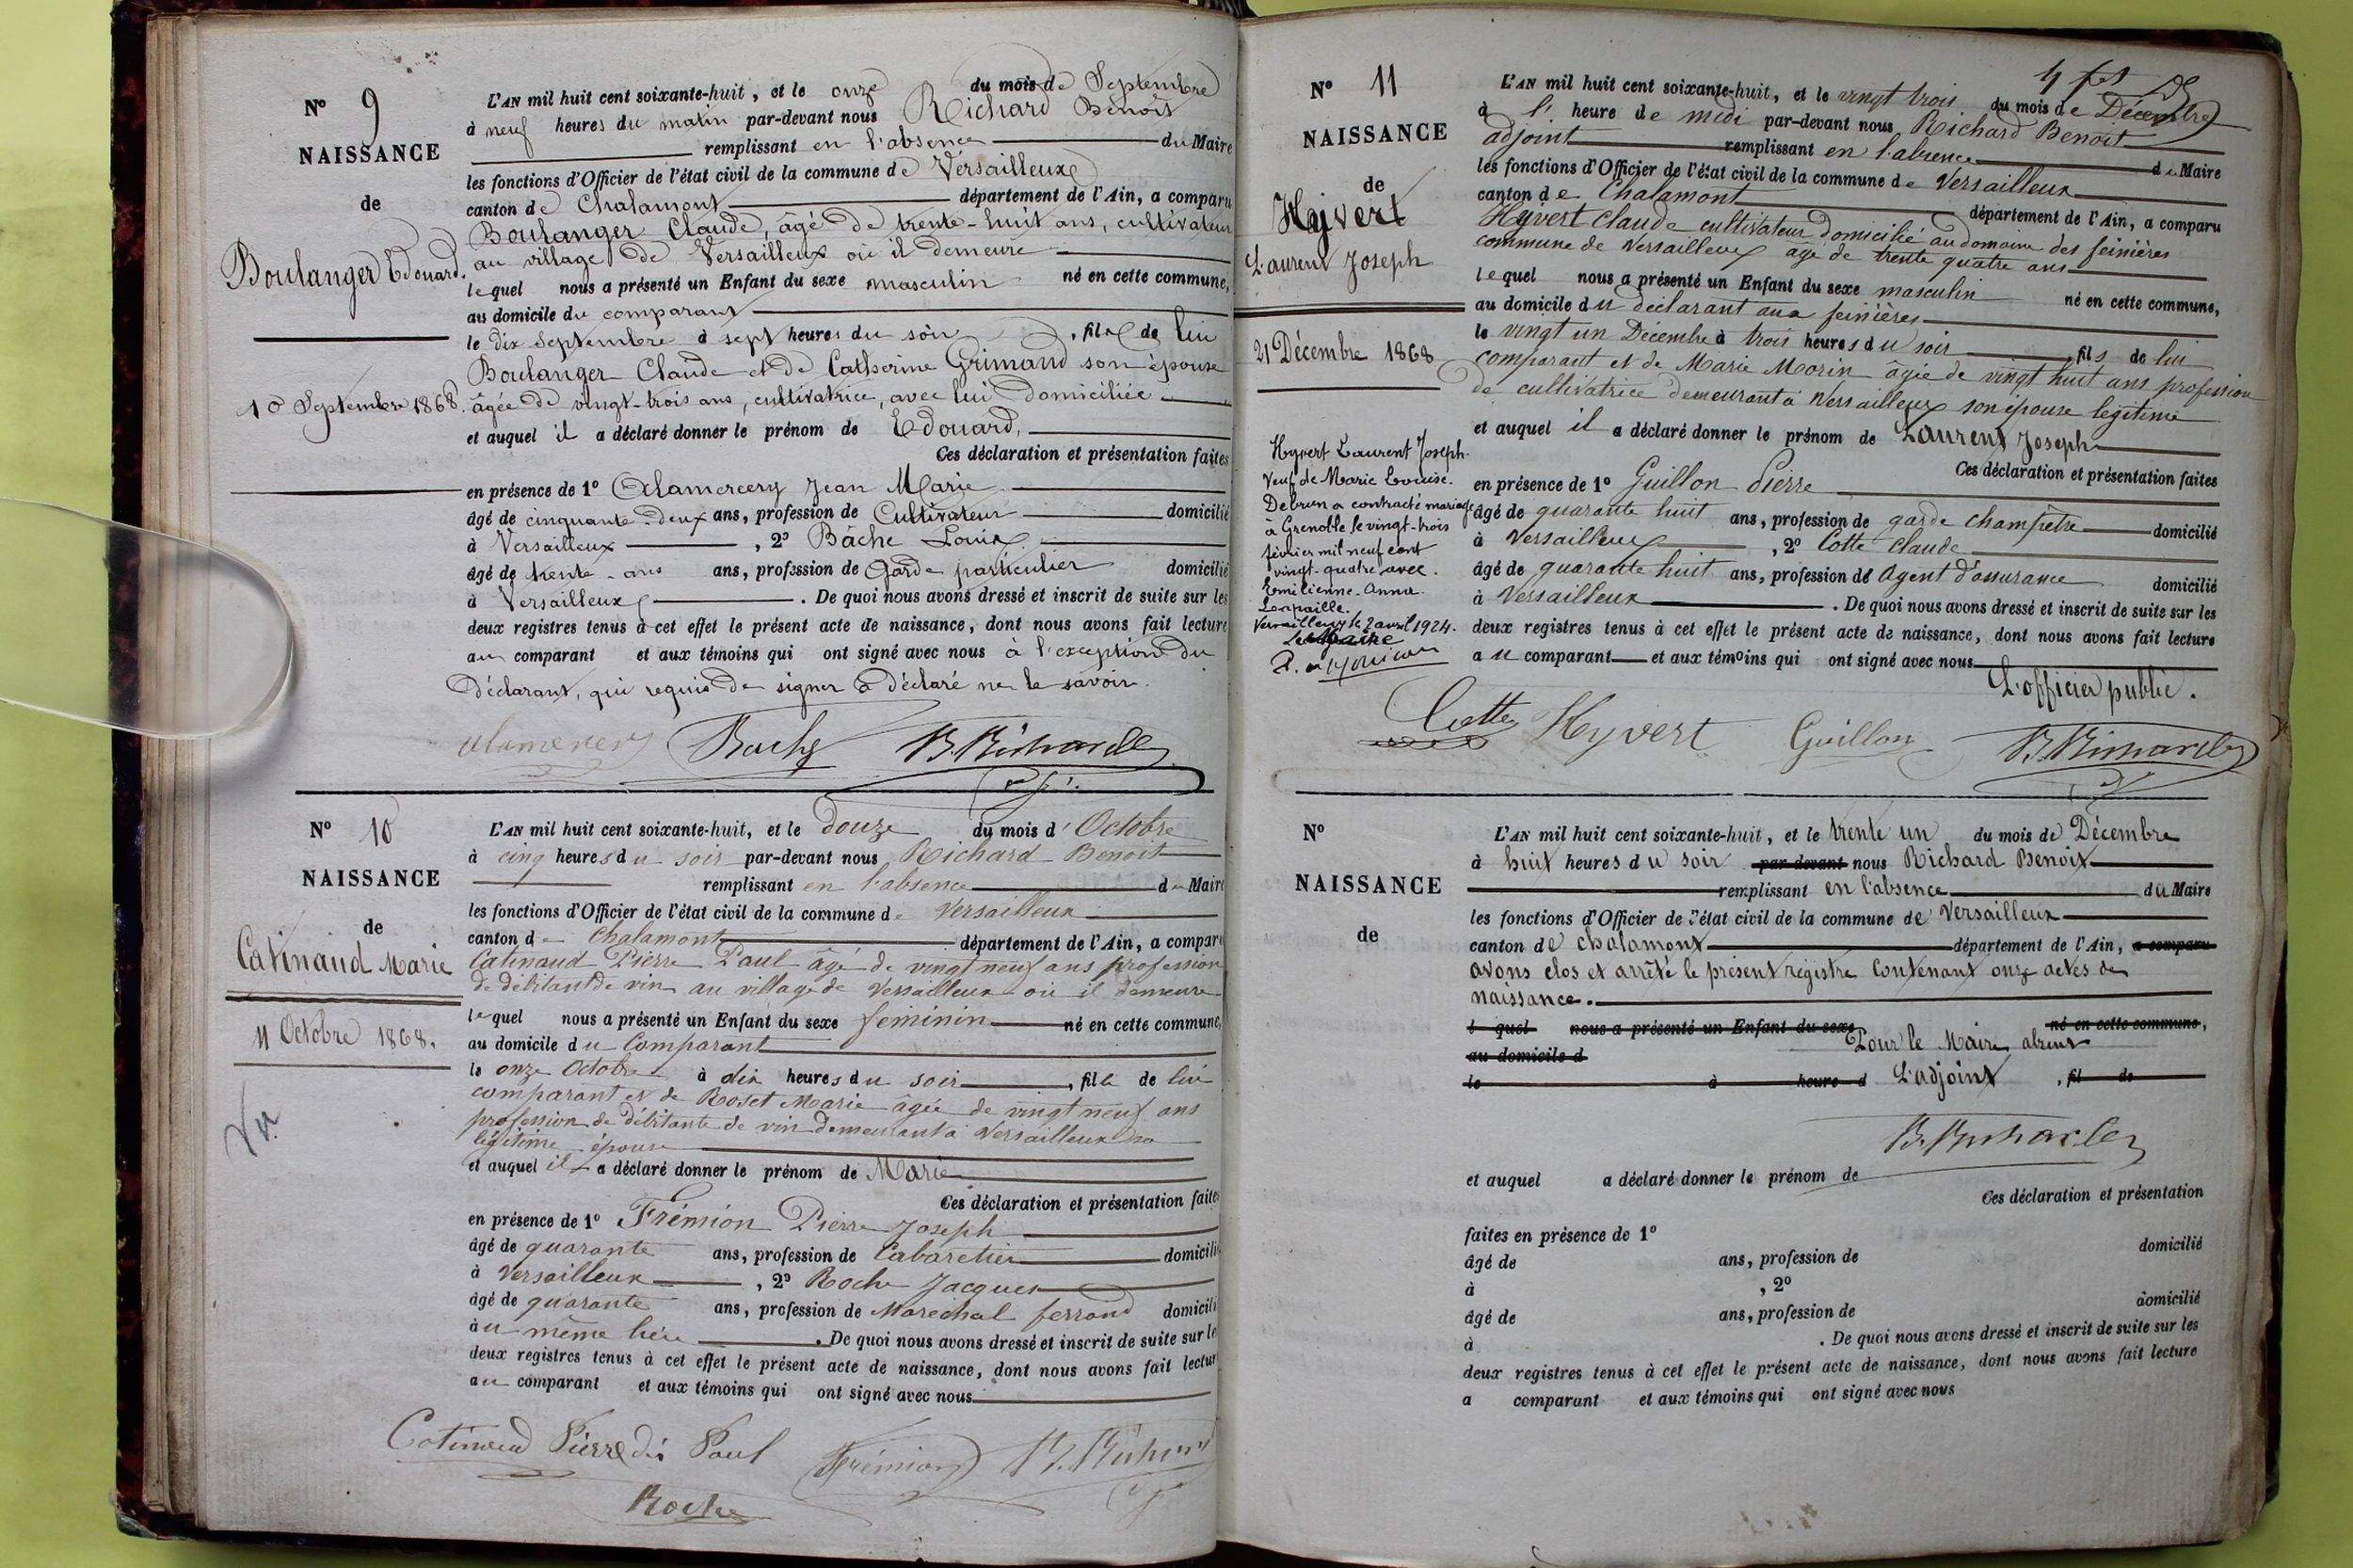 N° 9
NAISSANCE
de
Boulanger Edouard.
10 Septembre 1868.
L'AN mil huit cent soixante-huit, et le onze du mois de Septembre
à neuf heures du matin par-devant nous Richard Benoit
remplissant en l'absence du Maire
les fonctions d'Officier de l'état civil de la commune de Versailleux
canton de Chalamont département de l'Ain, a comparu
Boulanger Claude, âgé de trente-huit ans, cultivateur
au village de Versailleux où il demeure
lequel nous a présenté un Enfant du sexe masculin né en cette commune,
au domicile du comparant
le dix Septembre à sept heures du soir, fils de lui
Boulanger Claude et de Catherine Grimaud son épouse
âgée de vingt-trois ans, cultivatrice, avec lui domiciliée
et auquel il a déclaré donner le prénom de Edouard,
Ces déclaration et présentation faites
en présence de 1° Alamercery Jean Marie
âgé de cinquante-deux ans, profession de Cultivateur domicilié
à Versailleux, 2° Bâche Louis
âgé de trente-ans ans, profession de Garde particulier domicilié
à Versailleux. De quoi nous avons dressé et inscrit de suite sur les
deux registres tenus à cet effet le présent acte de naissance, dont nous avons fait lecture
au comparant et aux témoins qui ont signé avec nous à l'exception du
Déclarant, qui requis de signer a déclaré ne le savoir.
B. Richard
N° 10
NAISSANCE
de
Catinaud Marie
11 Octobre 1868.
Vu
L'AN mil huit cent soixante-huit, et le douze du mois d'Octobre
à cinq heures du soir par-devant nous Richard Benoit
remplissant en l'absence du Maire
les fonctions d'Officier de l'état civil de la commune de Versailleux
canton de Chalamont département de l'Ain, a comparu
Catinaud Pierre Paul âgé de vingt neuf ans profession
de débitant de vin au village de Versailleux où il demeure
lequel nous a présenté un Enfant du sexe féminin né en cette commune,
au domicile du Comparant
le onze Octobre à dix heures du soir, fille de lui
comparant et de Roset Marie âgée de vingt neuf ans
profession de débitante de vin demeurant à Versailleux sa
légitime épouse
et auquel il a déclaré donner le prénom de Marie
Ces déclaration et présentation faites
en présence de 1° Frémion Pierre Joseph
âgé de quarante ans, profession de Cabaretier domicilié
à Versailleux, 2° Roche Jacques
âgé de quarante ans, profession de Maréchal ferrand domicilié
au même lieu. De quoi nous avons dressé et inscrit de suite sur les
deux registres tenus à cet effet le présent acte de naissance, dont nous avons fait lecture
au comparant et aux témoins qui ont signé avec nous
Catinaud Pierre dit Paul Frémion B. Richard
Roche
N° 11
NAISSANCE
de
Hyvert
Laurent Joseph
21 Décembre 1868
Hyvert Laurent Joseph.
Veuf de Marie Louise.
Debrun a contracté mariage
à Grenoble le vingt-trois
février mil neuf cent
vingt-quatre avec.
Emilienne-Anna.
Versailleux le 2 avril 1924.
Le Maire
L'AN mil huit cent soixante-huit, et le vingt trois du mois de Décembre
à l' heure de midi par-devant nous Richard Benoit
adjoint remplissant en l'absence du Maire
les fonctions d'Officier de l'état civil de la commune de Versailleux
canton de Chalamont département de l'Ain, a comparu
Hyvert Claude cultivateur domicilié au domaine des feinières
commune de Versailleux âgé de trente quatre ans
lequel nous a présenté un Enfant du sexe masculin né en cette commune,
au domicile du déclarant aux feinières
le vingt un Décembre à trois heures du soir, fils de lui
comparant et de Marie Morin âgée de vingt huit ans profession
de cultivatrice demeurant à Versailleux son épouse légitime
et auquel il a déclaré donner le prénom de Laurent Joseph
Ces déclaration et présentation faites
en présence de 1° Guillon Pierre
âgé de quarante huit ans, profession de garde champêtre domicilié
à Versailleux, 2° Cotte Claude
âgé de quarante huit ans, profession de Agent d'assurance domicilié
à Versailleux. De quoi nous avons dressé et inscrit de suite sur les
deux registres tenus à cet effet le présent acte de naissance, dont nous avons fait lecture
au comparant et aux témoins qui ont signé avec nous
L'officier public.
Cotte Hyvert Guillon B. Richard
N°
NAISSANCE
de
L'AN mil huit cent soixante-huit, et le trente un du mois de Décembre
à huit heures du soir par-devant nous Richard Benoit
remplissant en l'absence du Maire
les fonctions d'Officier de l'état civil de la commune de Versailleux
canton de Chalamont département de l'Ain, a comparu
avons clos et arrêté le présent registre Contenant onze actes de
naissance.
l quel nous a présenté un Enfant du sexe né en cette commune,
au domicile d Pour le Maire absent
le à heure d L'adjoint, fil de
B. Richard
et auquel a déclaré donner le prénom de
Ces déclaration et présentation
faites en présence de 1°
âgé de ans, profession de domicilié
à , 2°
âgé de ans, profession de domicilié
à . De quoi nous avons dressé et inscrit de suite sur les
deux registres tenus à cet effet le présent acte de naissance, dont nous avons fait lecture
a comparant et aux témoins qui ont signé avec nous